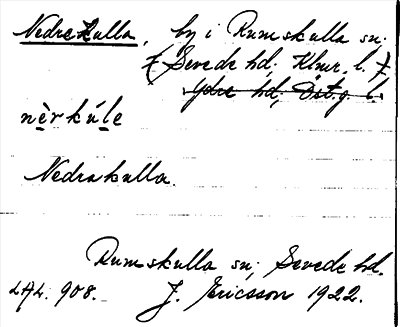 Nedrekulla, by i Rumskulla sn.
(Sevede hd; Klmr. l.)
Ydre hd, Östg. l.
nèrkúle
Nedrakulla.
Rumskulla sn; Sevede hd.
LAL. 908. J. Ericsson 1922.